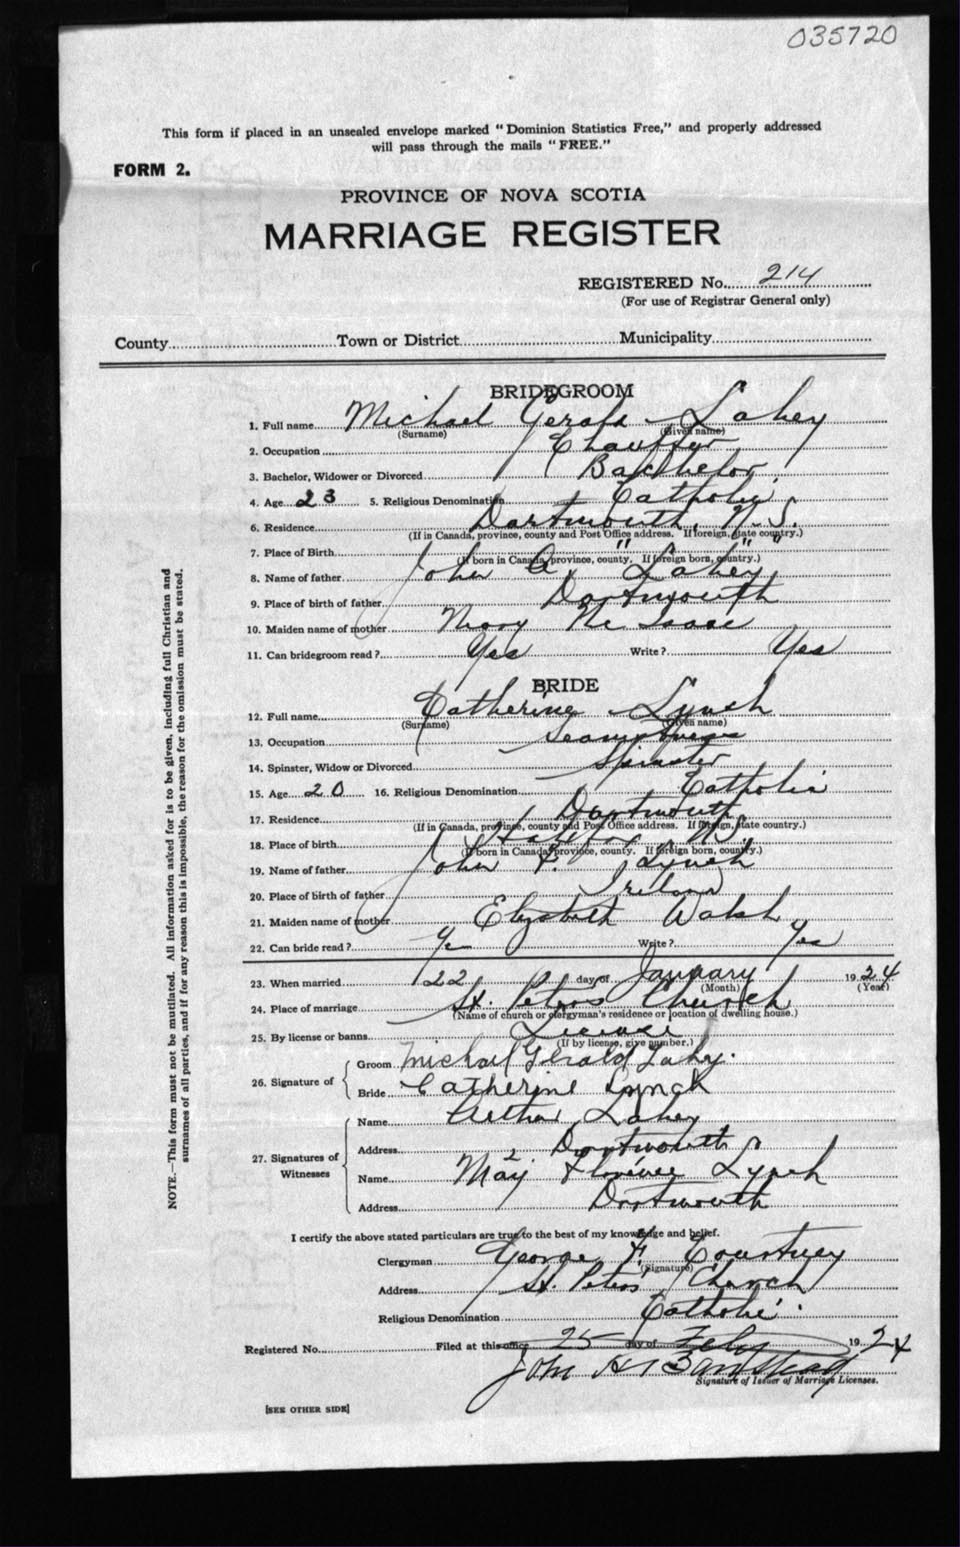 035720
This form if placed in an unsealed envelope marked "Dominion Statistics Free," and properly addressed
will pass through the mails "FREE."
FORM 2.
PROVINCE OF NOVA SCOTIA
MARRIAGE REGISTER
REGISTERED No. 214
(For use of Registrar General only)
County Town or District Municipality
BRIDEGROOM
1. Full name Michael Gerald Lahey
(Surname) (Given name)
2. Occupation Chauffeur
3. Bachelor, Widower or Divorced Bachelor
4. Age 23 5. Religious Denomination Catholic
6. Residence Dartmouth, N.S.
(If in Canada, province, county and Post Office address. If foreign, state country.)
7. Place of Birth " "
(If born in Canada, province, county. If foreign born, country.)
8. Name of father John A. Lahey
9. Place of birth of father Dartmouth
10. Maiden name of mother Mary Mc Isaac
11. Can bridegroom read? Yes Write? Yes
BRIDE
12. Full name Catherine Lynch
(Surname) (Given name)
13. Occupation
14. Spinster, Widow or Divorced Spinster
15. Age 20 16. Religious Denomination Catholic
17. Residence Dartmouth
(If in Canada, province, county and Post Office address. If foreign, state country.)
18. Place of birth Halifax
(If born in Canada, province, county. If foreign born, country.)
19. Name of father John F. Lynch
20. Place of birth of father Ireland
21. Maiden name of mother Elizabeth Walsh
22. Can bride read? Yes Write? Yes
23. When married 22 day of January 1924
(Month) (Year)
24. Place of marriage St. Peters Church
(Name of church or clergyman's residence or location of dwelling house.)
25. By license or banns License
(If by license, give number.)
26. Signature of
Groom Michael Gerald Lahey.
Bride Catherine Lynch
27. Signatures of Witnesses
Name Arthur Lahey
Address Dartmouth
Name May Florence Lynch
Address Dartmouth
I certify the above stated particulars are true to the best of my knowledge and belief.
Clergyman George F. Courtney
(Signature)
Address St. Peters Church
Religious Denomination Catholic
Registered No. Filed at this office 25 day of Feby 1924
John H Banstead
Signature of Issuer of Marriage Licenses.
[SEE OTHER SIDE]
NOTE.—This form must not be mutilated. All information asked for is to be given, including full Christian and
surnames of all parties, and if for any reason this is impossible, the reason for the omission must be stated.